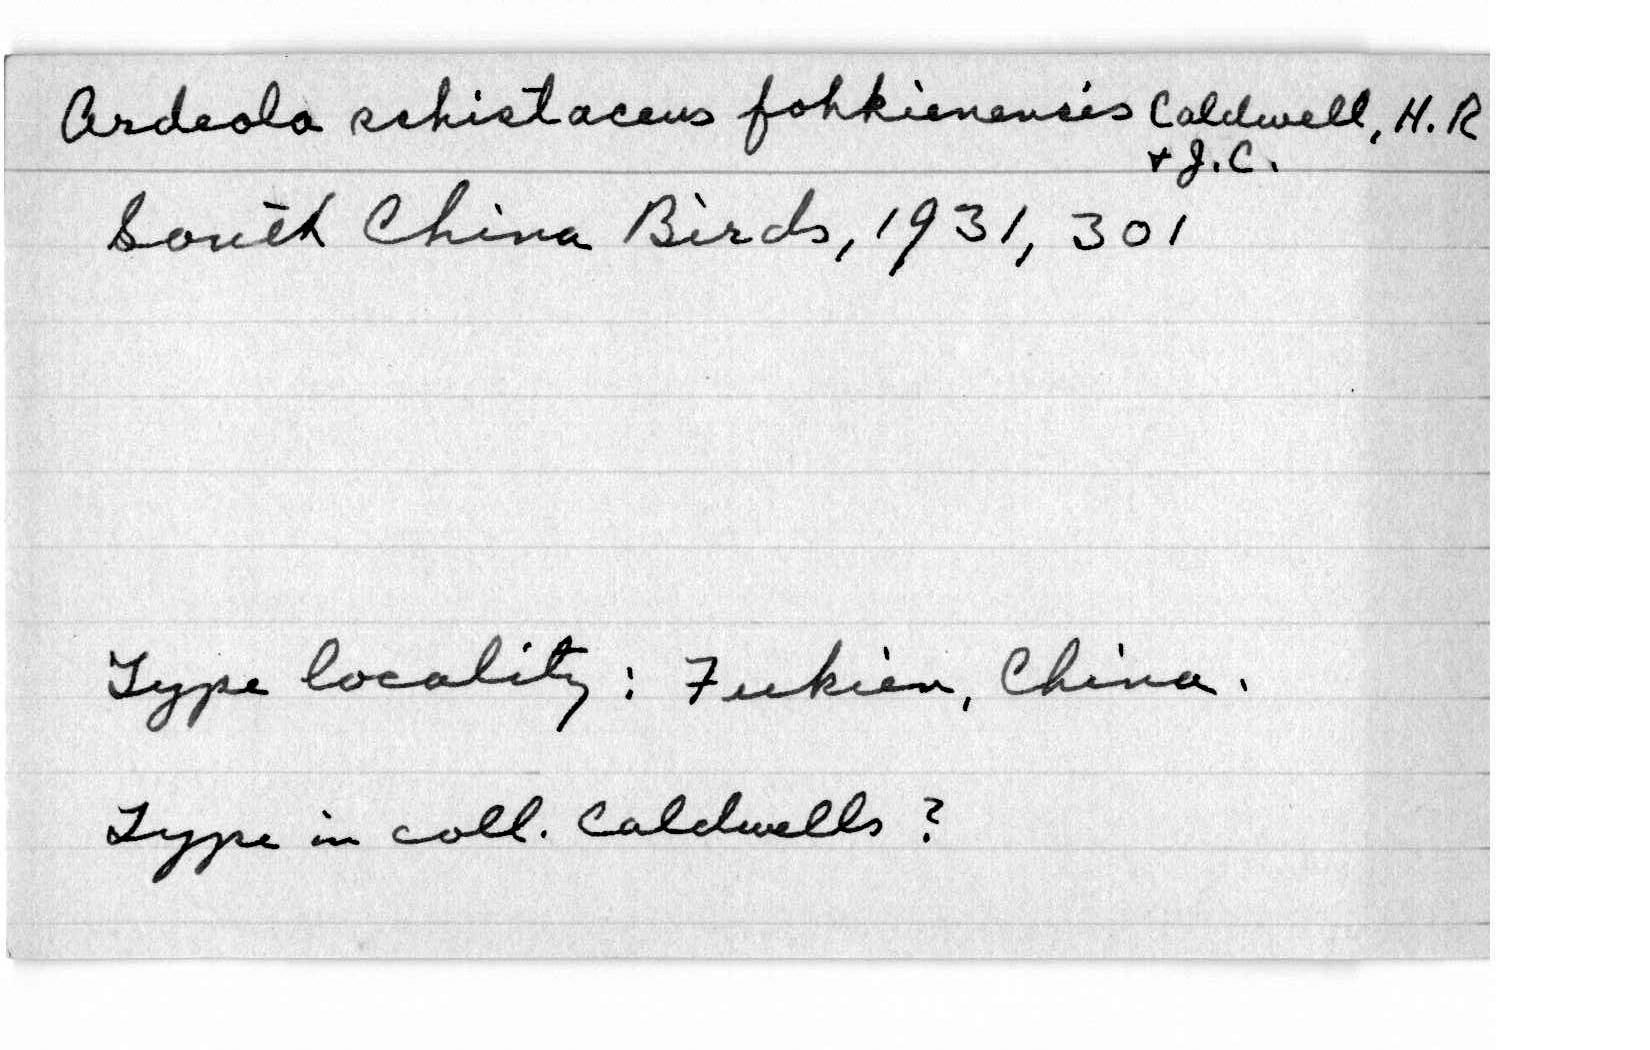 Ardeola schistaceus fohkienensis Caldwell, H.R
+ J.C.
South China Birds, 1931, 301
Type locality: Fukien, China.
Type in coll. Caldwells ?